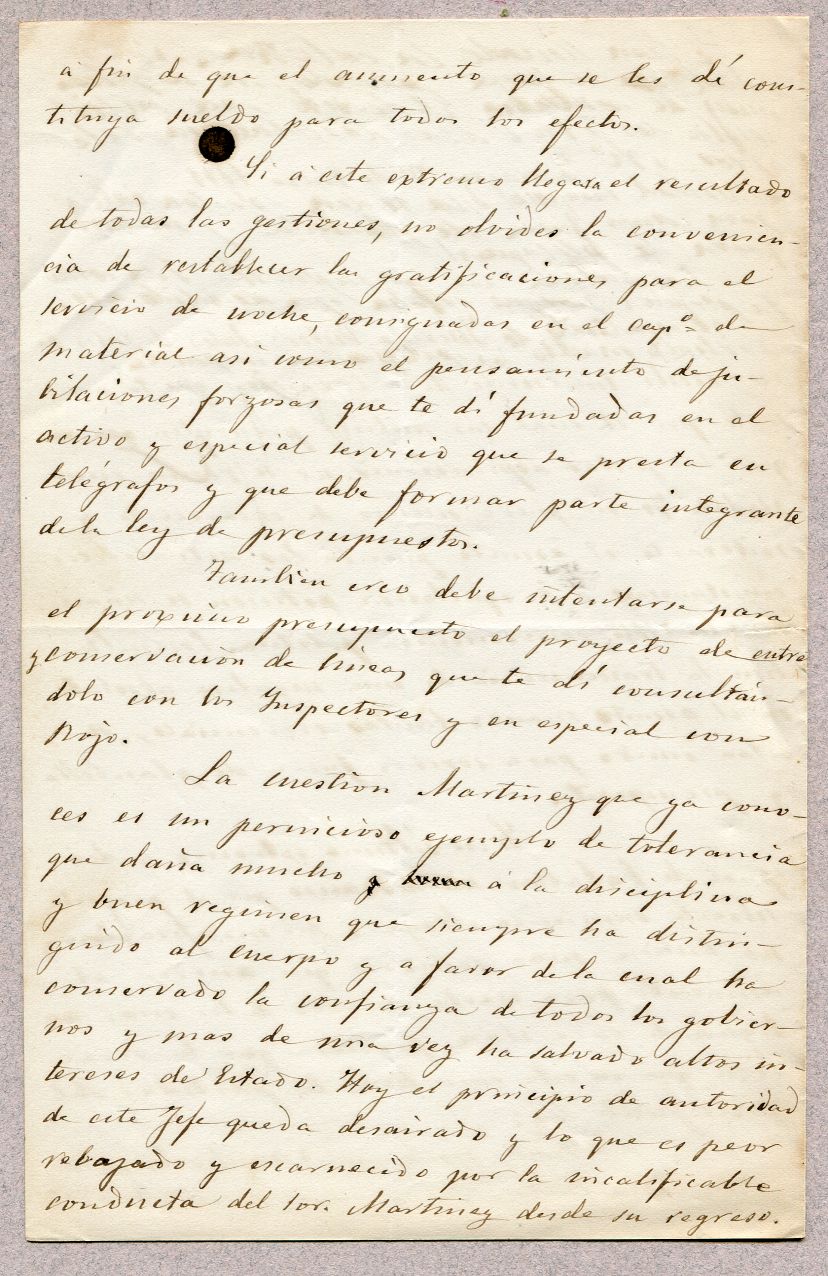 á fin de que el aumento que se les dé cons-
tituya sueldo para todos los efectos.
Si á este extremo llegara el resultado
de todas las gestiones, no olvides la convenien-
cia de restablecer las gratificaciones para el
servicio de noche, consignadas en el capº de
material asi como el pensamiento de ju-
bilaciones forzosas que te dí fundadas en el
activo y especial servicio que se presta en
telégrafos y que debe formar parte integrante
de la ley de presupuestos.
Tambien creo debe intentarse para
el proximo presupuesto el proyecto de entre
y conservacion de lineas que te dí consultán-
dolo con los Inspectores y en especial con
Rojo.
La cuestion Martinez que ya cono-
ces es un pernicioso ejemplo de tolerancia
que daña mucho y á la disciplina
y buen regimen que siempre ha distin-
guido al cuerpo y a favor de la cual ha
conservado la confianza de todos los gobier-
nos y mas de una vez ha salvado altos in-
tereses de Estado. Hoy el principio de autoridad
de este Jefe queda desairado y lo que es peor
rebajado y escarnecido por la incalificable
conducta del Sor. Martinez desde su regreso.